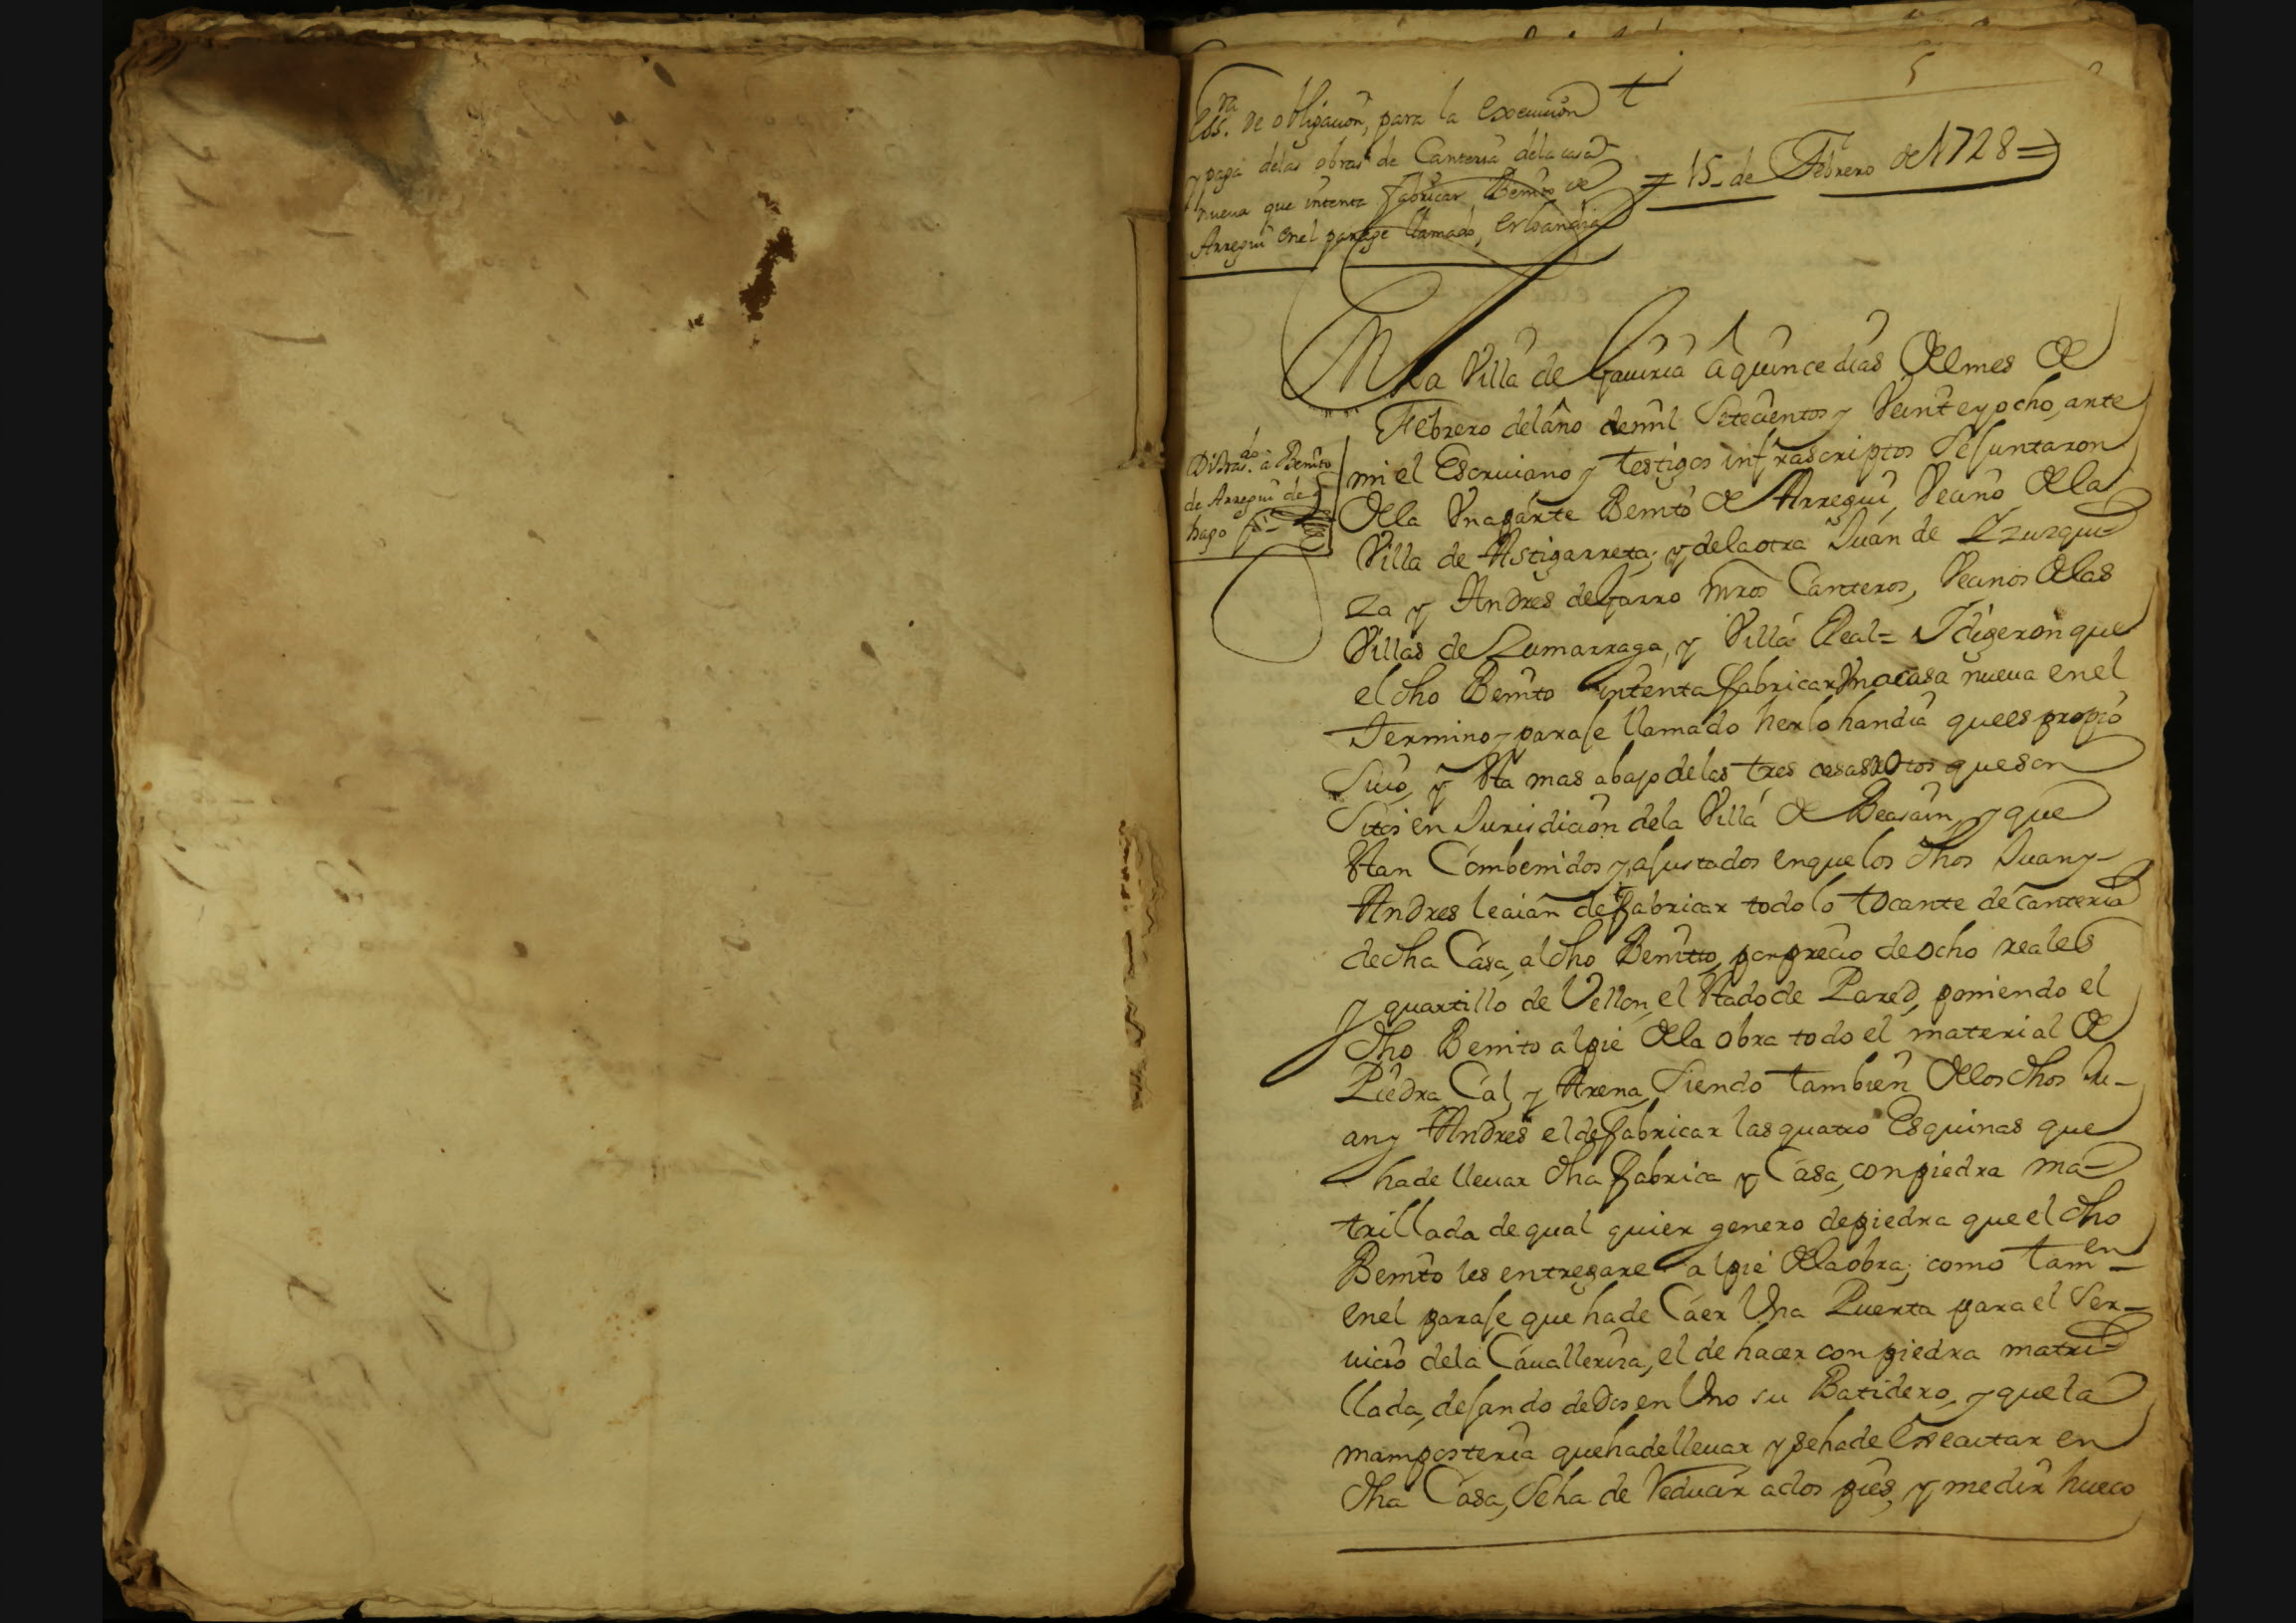 5
Ess.ra de obligaçion, para la execucion
y paga delas obras de Canteria dela casa
nueua que intenta fabricar Benito de
Arregui enel parage llamado, Erlo andia
= 15 de Febrero de 1728 =
En la Villa de Gauiria â quince dias del mes de
Febrero del año de mil Setecientos y Veinte y ocho, ante
mi el Escriuano y testigos infrascriptos Se Juntaron
dela Vna parte Benito de Arregui, Vecino dela
Villa de Astigarreta; y dela otra Juan de Yzuzqui-
za y Andres de Garro mros Canteros, Vecinos delas
Villas de Zumarraga, y Villa Real = I digeron que
el dho Benito intenta fabricar Vna casa nueua enel
Termino y paraje llamado herlo handia que es propio
Suio, y sta mas abajo de las tres casas que son
Sitos en Jurisdicion dela Villa de Beasain, y que
stan Combenidos y ajustados enque los dhos Juan y
Andres le aian de fabricar todo lo tocante de canteria
de dha Casa, al dho Benito, por precio de ocho reales
y quartillo de Vellon, el stado de Pared, poniendo el
dho Benito al pie dela obra todo el material de
Piedra Cal, y Arena, Siendo tambien delos dhos Ju-
an y Andres el de fabricar las quatro Esquinas que
ha de lleuar dha fabrica y Casa, con piedra ma-
trillada de qual quier genero de piedra que el dho
Benito les entregare al pie dela obra; como tam en
enel paraje que ha de Caer Vna Puerta para el Ser-
uicio dela Cauallerisa, el de hacer con piedra matri-
llada, dejando de dos en Vno su Batidero, y que la
mamposteria que ha de lleuar y se ha de Executar en
dha Casa, Se ha de Reducir a dos pies, y medir hueco
Di tras.do a Benito
de Arregui de
hago fe